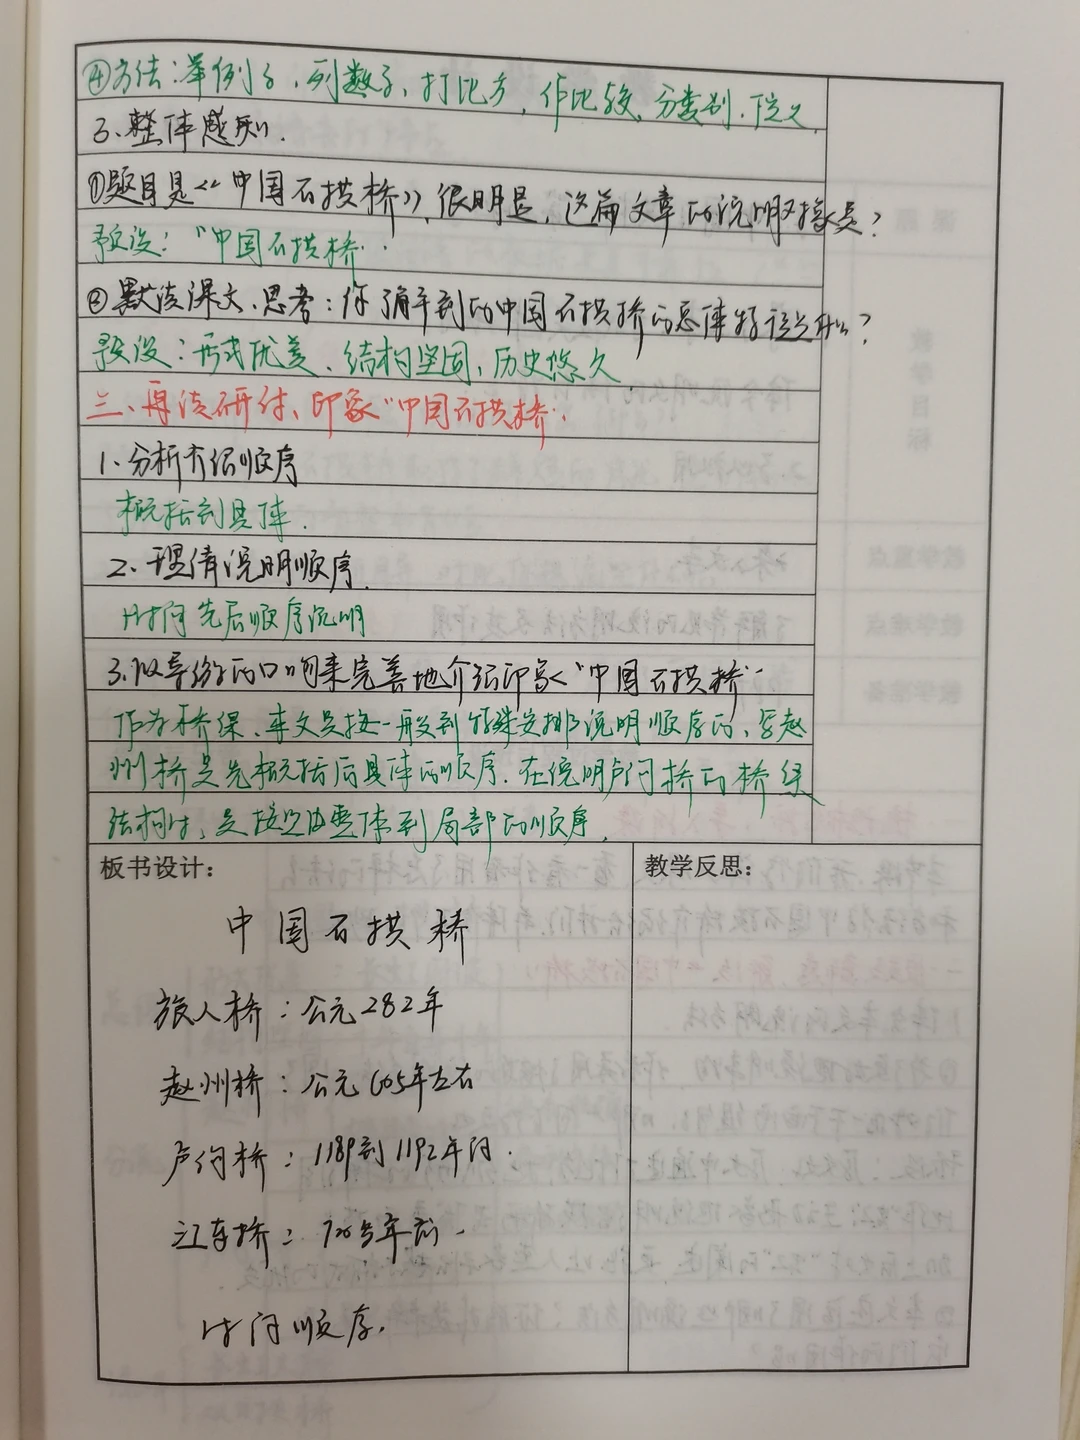 ④方法:举例子、列数字、打比方、作比较、分类别、下定义
3、整体感知.
①题目是《中国石拱桥》,很明显,这篇文章的说明对象是?
预设:“中国石拱桥”
②默读课文,思考:你了解到的中国石拱桥的总体特征是什么?
预设:形式优美、结构坚固、历史悠久
三、再读研讨、印象“中国石拱桥”
1、分析介绍顺序
概括到具体.
2、理清说明顺序.
时间先后顺序说明
3、以导游的口吻来完善地介绍印象“中国石拱桥”
作为桥梁,本文是按一般到特殊安排说明顺序的,写赵
州桥是先概括后具体的顺序.在说明卢沟桥的桥梁
结构时,是按照由整体到局部的顺序.
板书设计:
教学反思:
中国石拱桥
旅人桥:公元282年
赵州桥:公元605年左右
卢沟桥:1189到1192年间.
江东桥:700多年前.
时间顺序.